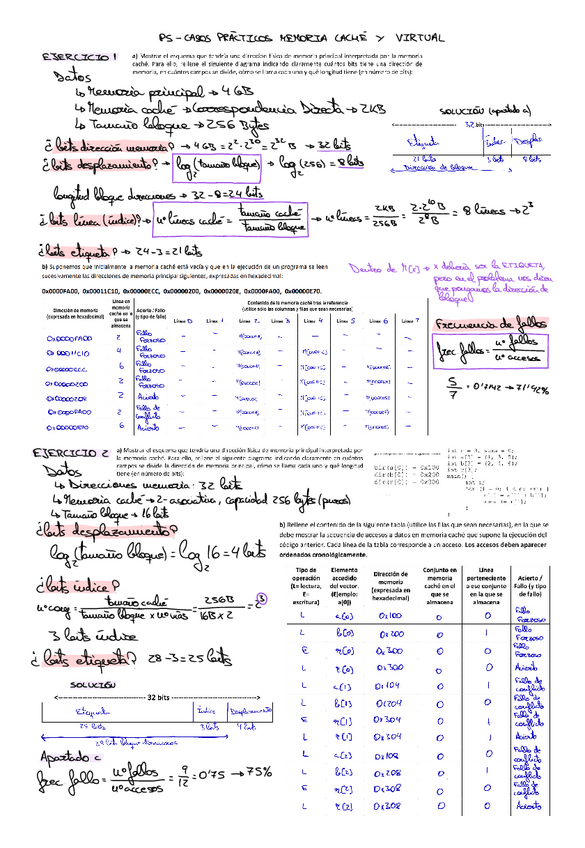 PS - CASOS PRÁCTICOS MEMORIA CACHÉ Y VIRTUAL
EJERCICIO 1
a) Mostrar el esquema que tendría una dirección física de memoria principal interpretada por la memoria
caché. Para ello, rellene el siguiente diagrama indicando claramente cuántos bits tiene una dirección de
memoria, en cuántos campos se divide, cómo se llama cada uno y qué longitud tiene (en número de bits):
Datos
↳ Memoria principal → 4GB
↳ Memoria caché → Correspondencia Directa → 2KB
↳ Tamaño bloque → 256 Bytes
SOLUCIÓN (apartado a)
32 bits
Etiqueta Índice Desplaz.
21 bits 3 bits 8 bits
Dirección de bloque
¿bits dirección memoria? → 4GB = 2²·2³⁰ = 2³² B → 32 bits
¿bits desplazamiento? → log₂ (tamaño bloque) → log₂ (256) = 8 bits
longitud bloque direcciones → 32 - 8 = 24 bits
¿bits línea (índice)? → nº líneas caché = tamaño caché / tamaño bloque → nº líneas = 2KB / 256B = 2·2¹⁰B / 2⁸B = 8 líneas → 2³
¿bits etiqueta? → 24 - 3 = 21 bits
b) Si ponemos que inicialmente la memoria caché está vacía y que en la ejecución de un programa se leen
sucesivamente las direcciones de memoria principal siguientes, expresadas en hexadecimal:
0x0000FA00, 0x00011C10, 0x00000ECC, 0x00000200, 0x0000020E, 0x0000FA00, 0x00000E70.
Dentro de M[x] → x debería ser la ETIQUETA,
pero en el problema nos dicen
que pongamos la dirección de
bloque)
Dirección de memoria (expresada en hexadecimal)
Línea en memoria caché en a que se almacena
Acierto / Fallo (y tipo de fallo)
Contenido de la memoria caché tras la referencia
(utilice sólo las columnas y filas que sean necesarias)
Línea 0 Línea 1 Línea 2 Línea 3 Línea 4 Línea 5 Línea 6 Línea 7
0x0000FA00 2 Fallo Forzoso
0x00011C10 4 Fallo Forzoso
0x00000ECC 6 Fallo Forzoso
0x00000200 2 Fallo Forzoso
0x0000020E 2 Acierto
0x0000FA00 2 Fallo de conflicto
0x00000E70 6 Acierto
Frecuencia de fallos
frec fallos = nº fallos / nº accesos
5/7 = 0'7142 → 71'42%
EJERCICIO 2
a) Mostrar el esquema que tendría una dirección física de memoria principal interpretada por
la memoria caché. Para ello, rellene el siguiente diagrama indicando claramente en cuántos
campos se divide la dirección de memoria principal, cómo se llama cada uno y qué longitud
tiene (en número de bits):
Datos
↳ Direcciones memoria: 32 bits
↳ Memoria caché → 2-asociativa, capacidad 256 bytes
↳ Tamaño bloque → 16 bits
¿bits desplazamiento?
log₂ (tamaño bloque) = log₂ 16 = 4 bits
¿bits índice?
nº conj = tamaño caché / tamaño bloque x nº vías = 256B / 16B x 2 = 2³
3 bits índice
¿bits etiqueta? 28 - 3 = 25 bits
SOLUCIÓN
32 bits
Etiqueta Índice Desplazamiento
25 bits 3 bits 4 bits
Apartado c
frec fallo = nº fallos / nº accesos = 9/12 = 0'75 → 75%
b) Rellene el contenido de la siguiente tabla (utilice las filas que sean necesarias), en la que se
debe mostrar la secuencia de accesos a datos en memoria caché que supone la ejecución del
código anterior. Cada línea de la tabla corresponde a un acceso. Los accesos deben aparecer
ordenados cronológicamente.
Tipo de operación (L= lectura, E= escritura)
Elemento accedido del vector. (Ejemplo: a[0])
Dirección de memoria (expresada en hexadecimal)
Conjunto en memoria caché en el que se almacena
Línea perteneciente a ese conjunto en la que se almacena
Acierto / Fallo (y tipo de fallo)
L a[0] 0x100 0 0 Fallo Forzoso
L b[0] 0x200 0 1 Fallo Forzoso
E r[0] 0x300 0 0 Fallo Forzoso
L r[0] 0x300 0 0 Acierto
L a[1] 0x104 0 1 Fallo de conflicto
L b[1] 0x204 0 0 Fallo de conflicto
E r[1] 0x304 0 1 Fallo de conflicto
L r[1] 0x304 0 1 Acierto
L a[2] 0x108 0 0 Fallo de conflicto
L b[2] 0x208 0 1 Fallo de conflicto
E r[2] 0x308 0 0 Fallo de conflicto
L r[2] 0x308 0 0 Acierto